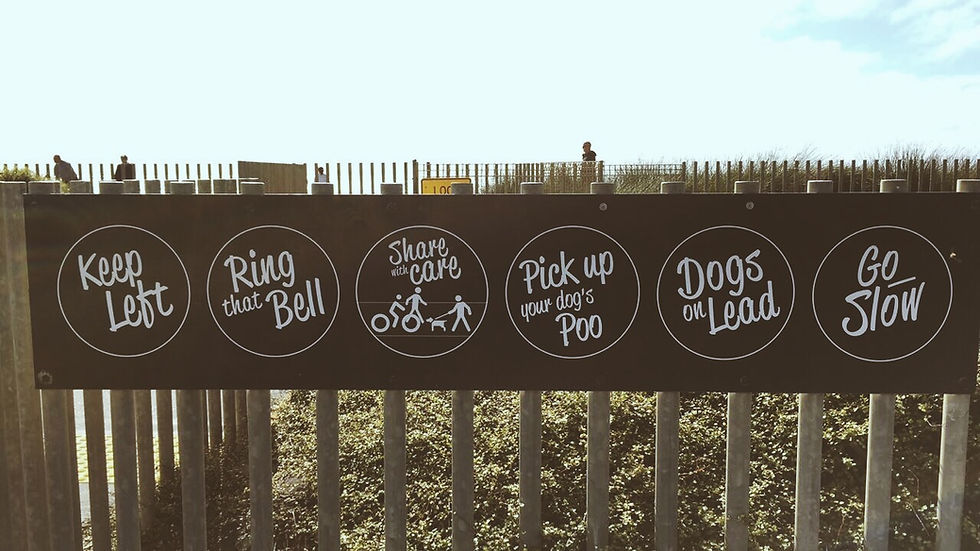 Keep
Left
Ring
that Bell
Share
with care
Pick up
your dog's
Poo
Dogs
on Lead
Go
Slow